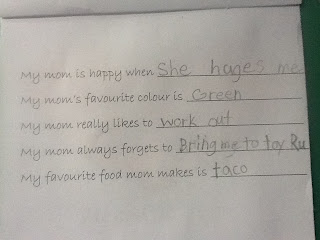 My mom is happy when she hages me
My mom's favourite colour is Green
My mom really likes to work out
My mom always forgets to Bring me to toy Ru
My favourite food mom makes is taco